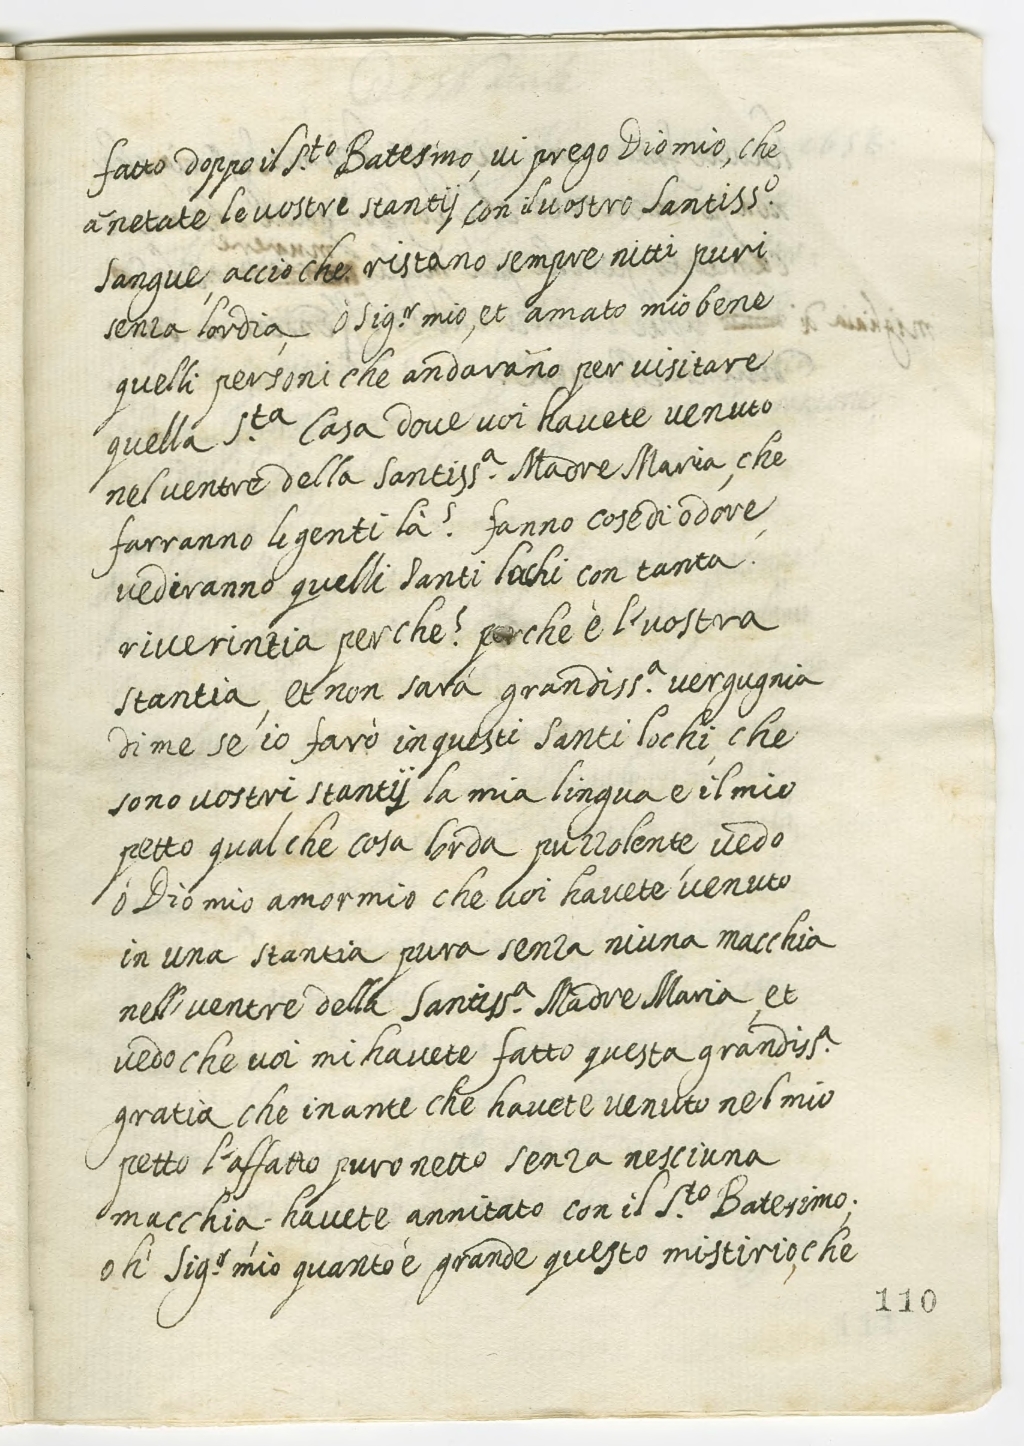 fatto doppo il S.to Batesimo, vi prego Dio mio, che
añetate le vostre stantij con il vostro Santiss.o
Sangue, accio che ristano sempre nitti puri
senza lordia, ò Sig.r mio, et amato mio bene
quelli persòni che andarañno per visitare
quella S.ta Casa dove voi havete venuto
nel ventre della Santiss.a Madre Maria, che
farranno le genti là? fanno cose di odore,
vediranno quelli Santi lochi con tanta
riverintia perche? perche è l'vostra
stantia, et non sarà grandiss.a vergugnia
di me se io farò in questi Santi lochi, che
sono vostri stantij la mia lingua e il mio
petto qual che cosa lorda puzzolente, vedo
ò Dio mio amor mio che voi havete venuto
in una stantia pura senza niuna macchia
nell' ventre della Santiss.a Madre Maria, et
vedo che voi mi havete fatto questa grandiss.a
gratia che inante che havete venuto nel mio
petto l'affatto puro netto senza nesciuna
macchia, havete annitato con il S.to Batesimo;
oh' Sig.r mio quanto è grande questo mistirio, che
110